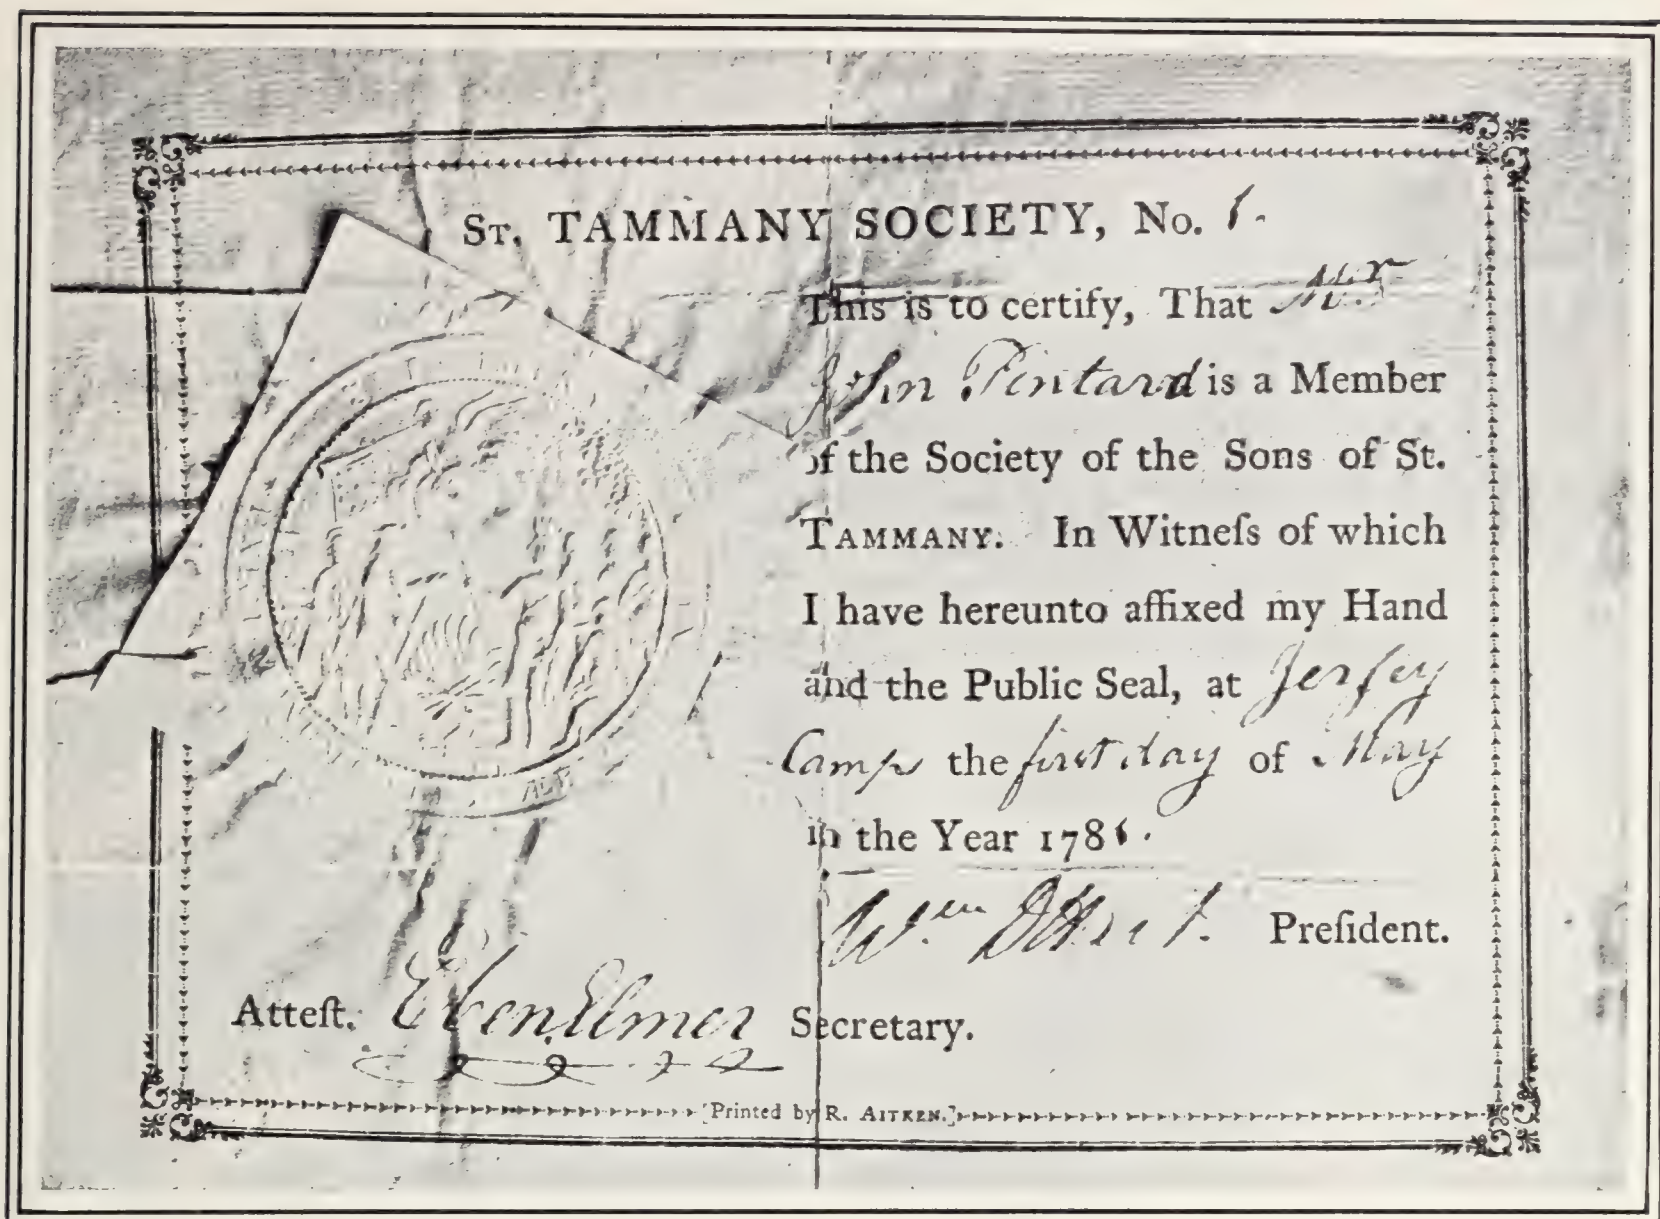 ST. TAMMANY SOCIETY, No. 6.
This is to certify, That Mr
John Pintard is a Member
of the Society of the Sons of St.
TAMMANY. In Witneſs of which
I have hereunto affixed my Hand
and the Public Seal, at Jerſey
Camp the firſt day of May
in the Year 1786.
Wm DHart. Preſident.
Atteſt. Eben Elmer Secretary.
[Printed by R. AITKEN.]